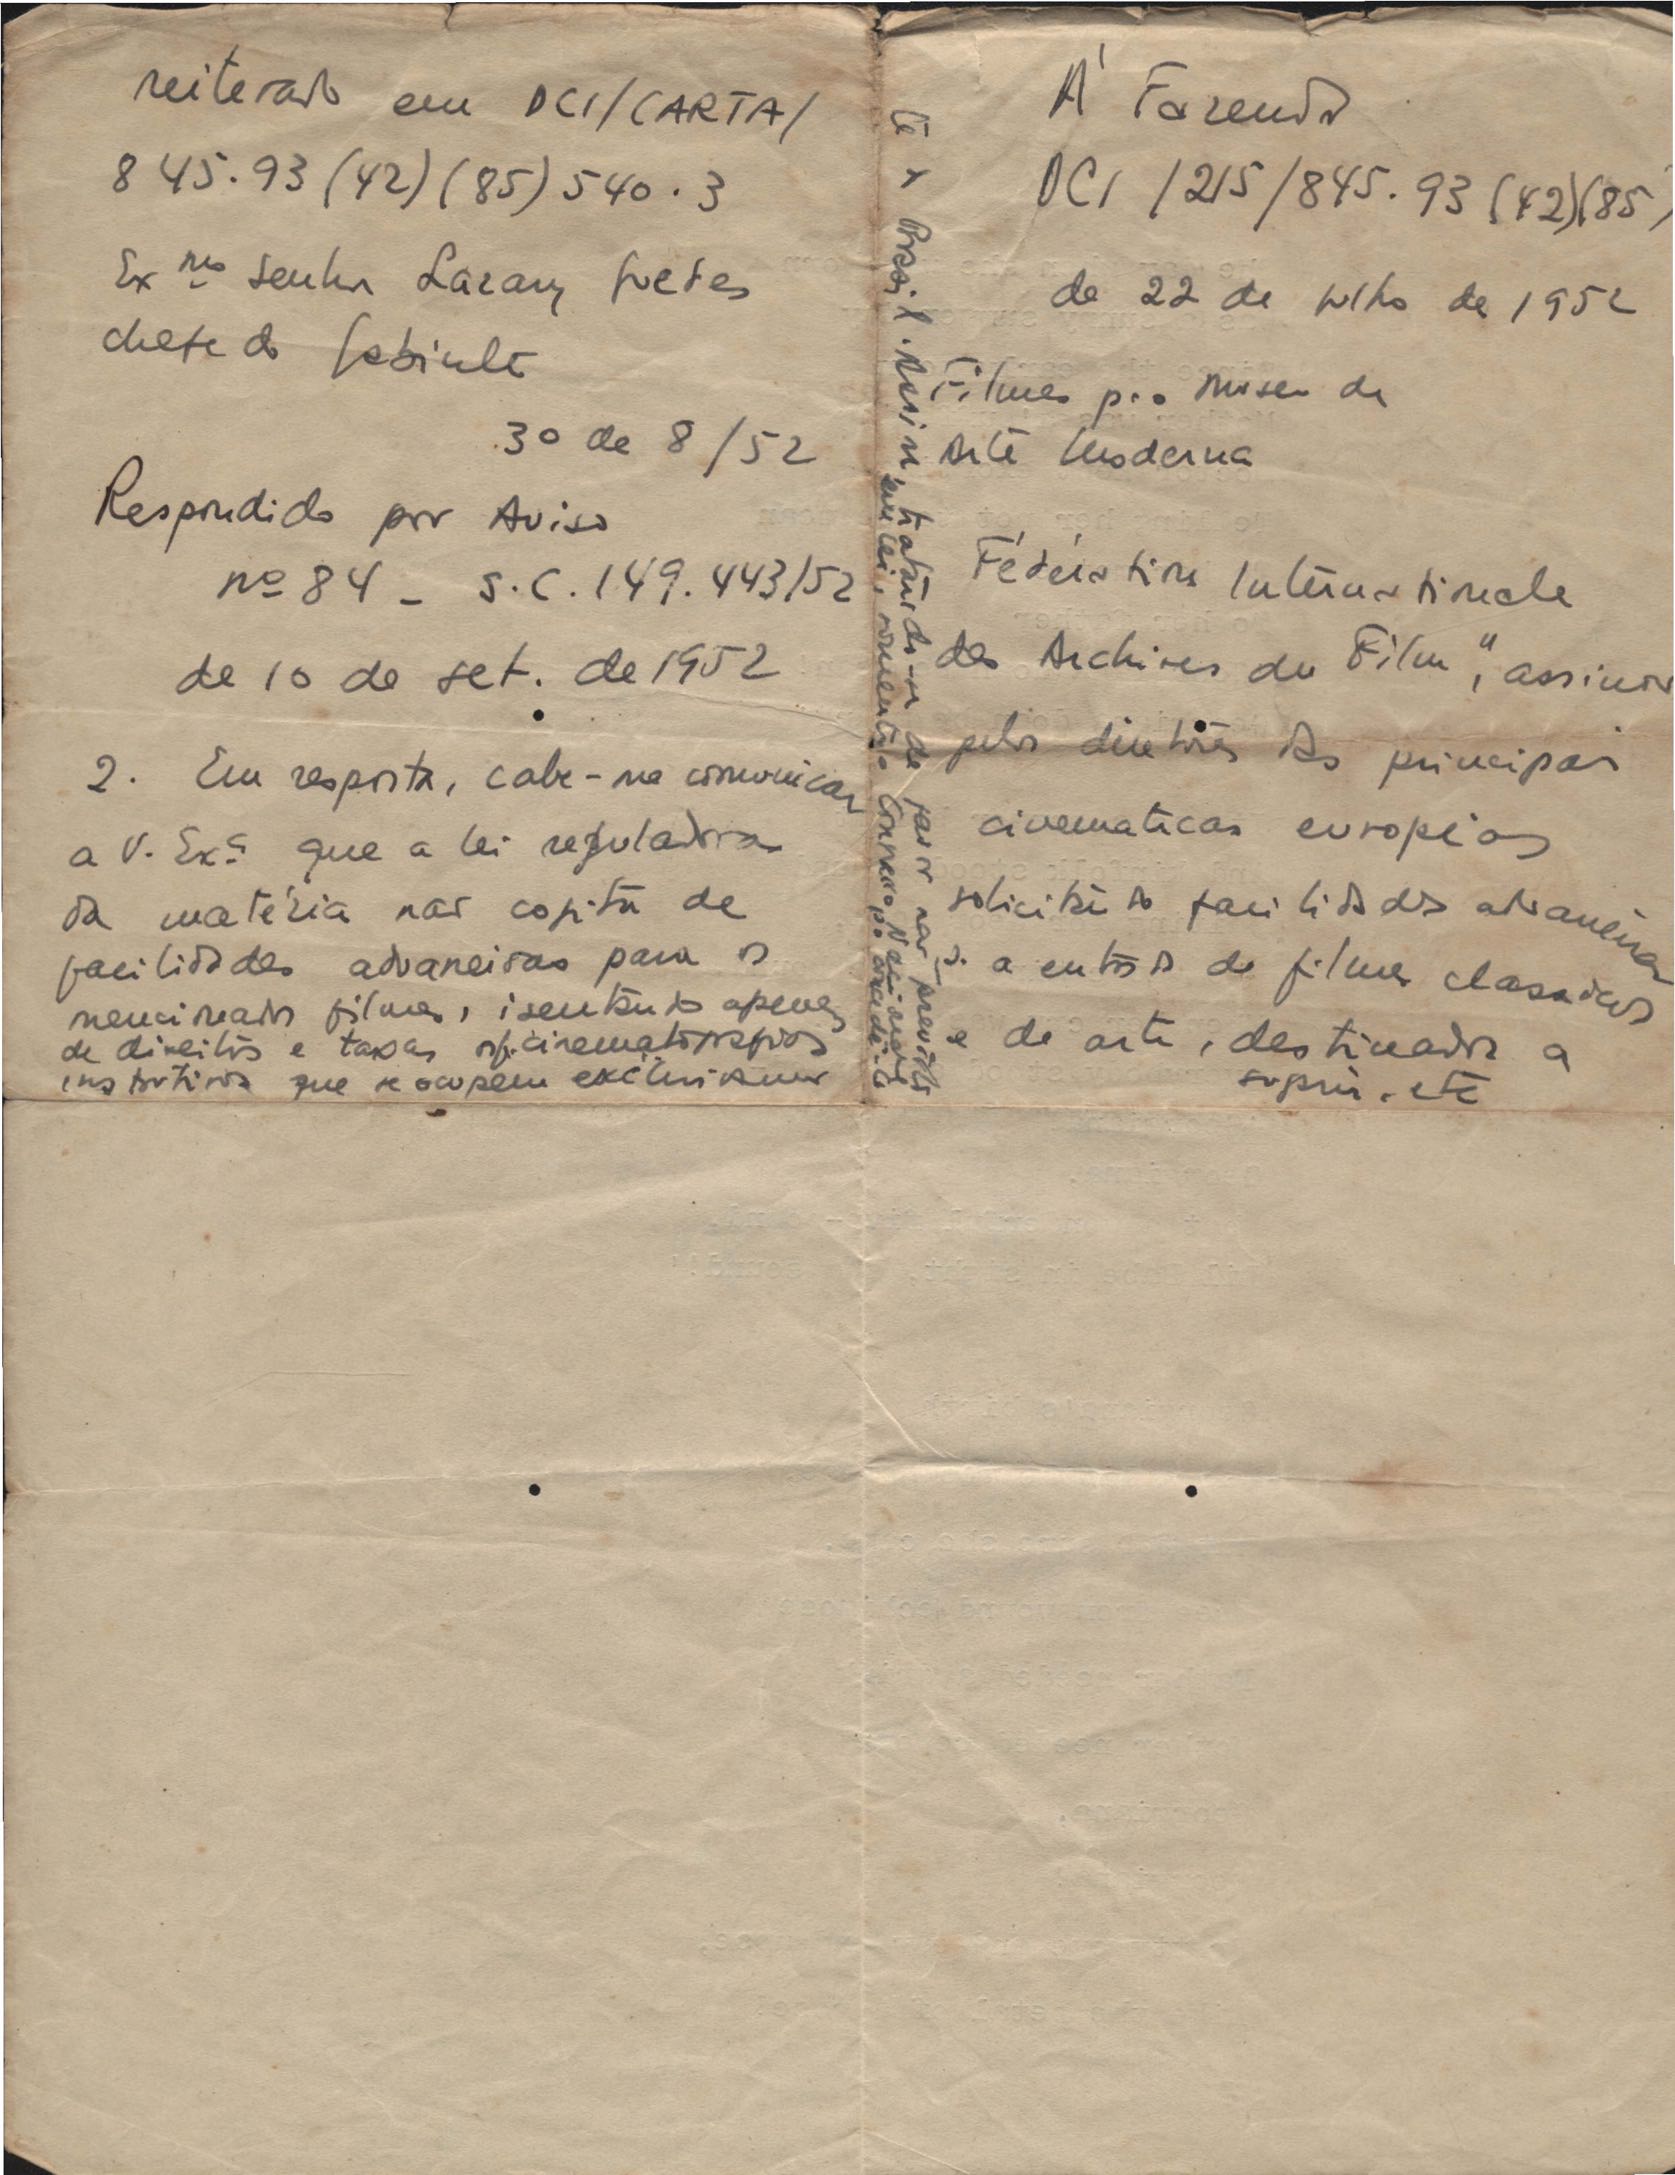 À Fazenda
DCI /215/845.93 (42)(85)
de 22 de julho de 1952
Filmes p.o Museu de
Arte Moderna
Fédération Internationale
des Archives du Film", assinado
pelos diretores das principais
cinematecas européias
solicitando facilidades aduaneiras
p. a entrada de filmes classicos
e de arte, destinados a
suprir. etc
reiterado em DCI/CARTA/
845.93 (42) (85) 540.3
Exmo Senhor Lazary Guedes
chefe do Gabinete
30 de 8/52
Respondido por Aviso
nº 84 - S.C. 149.443/52
de 10 de set. de 1952
2. Em resposta, cabe-me comunicar
a V. Exª que a lei reguladora
da matéria não cogita de
facilidades aduaneiras para os
mencionados filmes, isentando apenas
de direitos e taxas os cinematográficos
instrutivos que se ocupem exclusivamen
te x Brasil. Assim, tratando-se de favor não previsto
em lei, somente o Congresso Nacional poderá concedê-lo